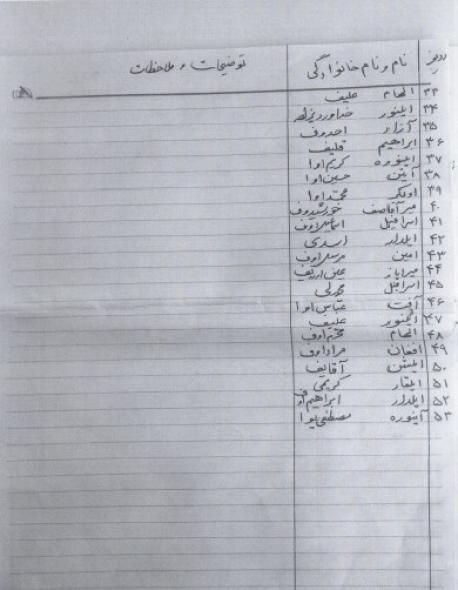 ردیف نام و نام خانوادگی توضیحات و ملاحظات
۳۳ الهام علیف
۳۴ ایلنور
۳۵ آزاد احدوف
۳۶ ابراهیم قلیف
۳۷ اینوره کریم اوا
۳۸ آیتن حسین اوا
۳۹ محمد اوا
۴۰ میرآقاصف خورشیدوف
۴۱ اسرافیل اسماعیل اوف
۴۲ ایلدار اسدی
۴۳ امین مرسل اوف
۴۴
۴۵ اسرافیل
۴۶ آفت عباس اوا
۴۷ علیف
۴۸ الهام محرم اوف
۴۹ افغان مراداوف
۵۰ ایلشن آقایف
۵۱ ایلقار کریمی
۵۲ ایلدار ابراهیم اف
۵۳ آینوره مصطفی یوا